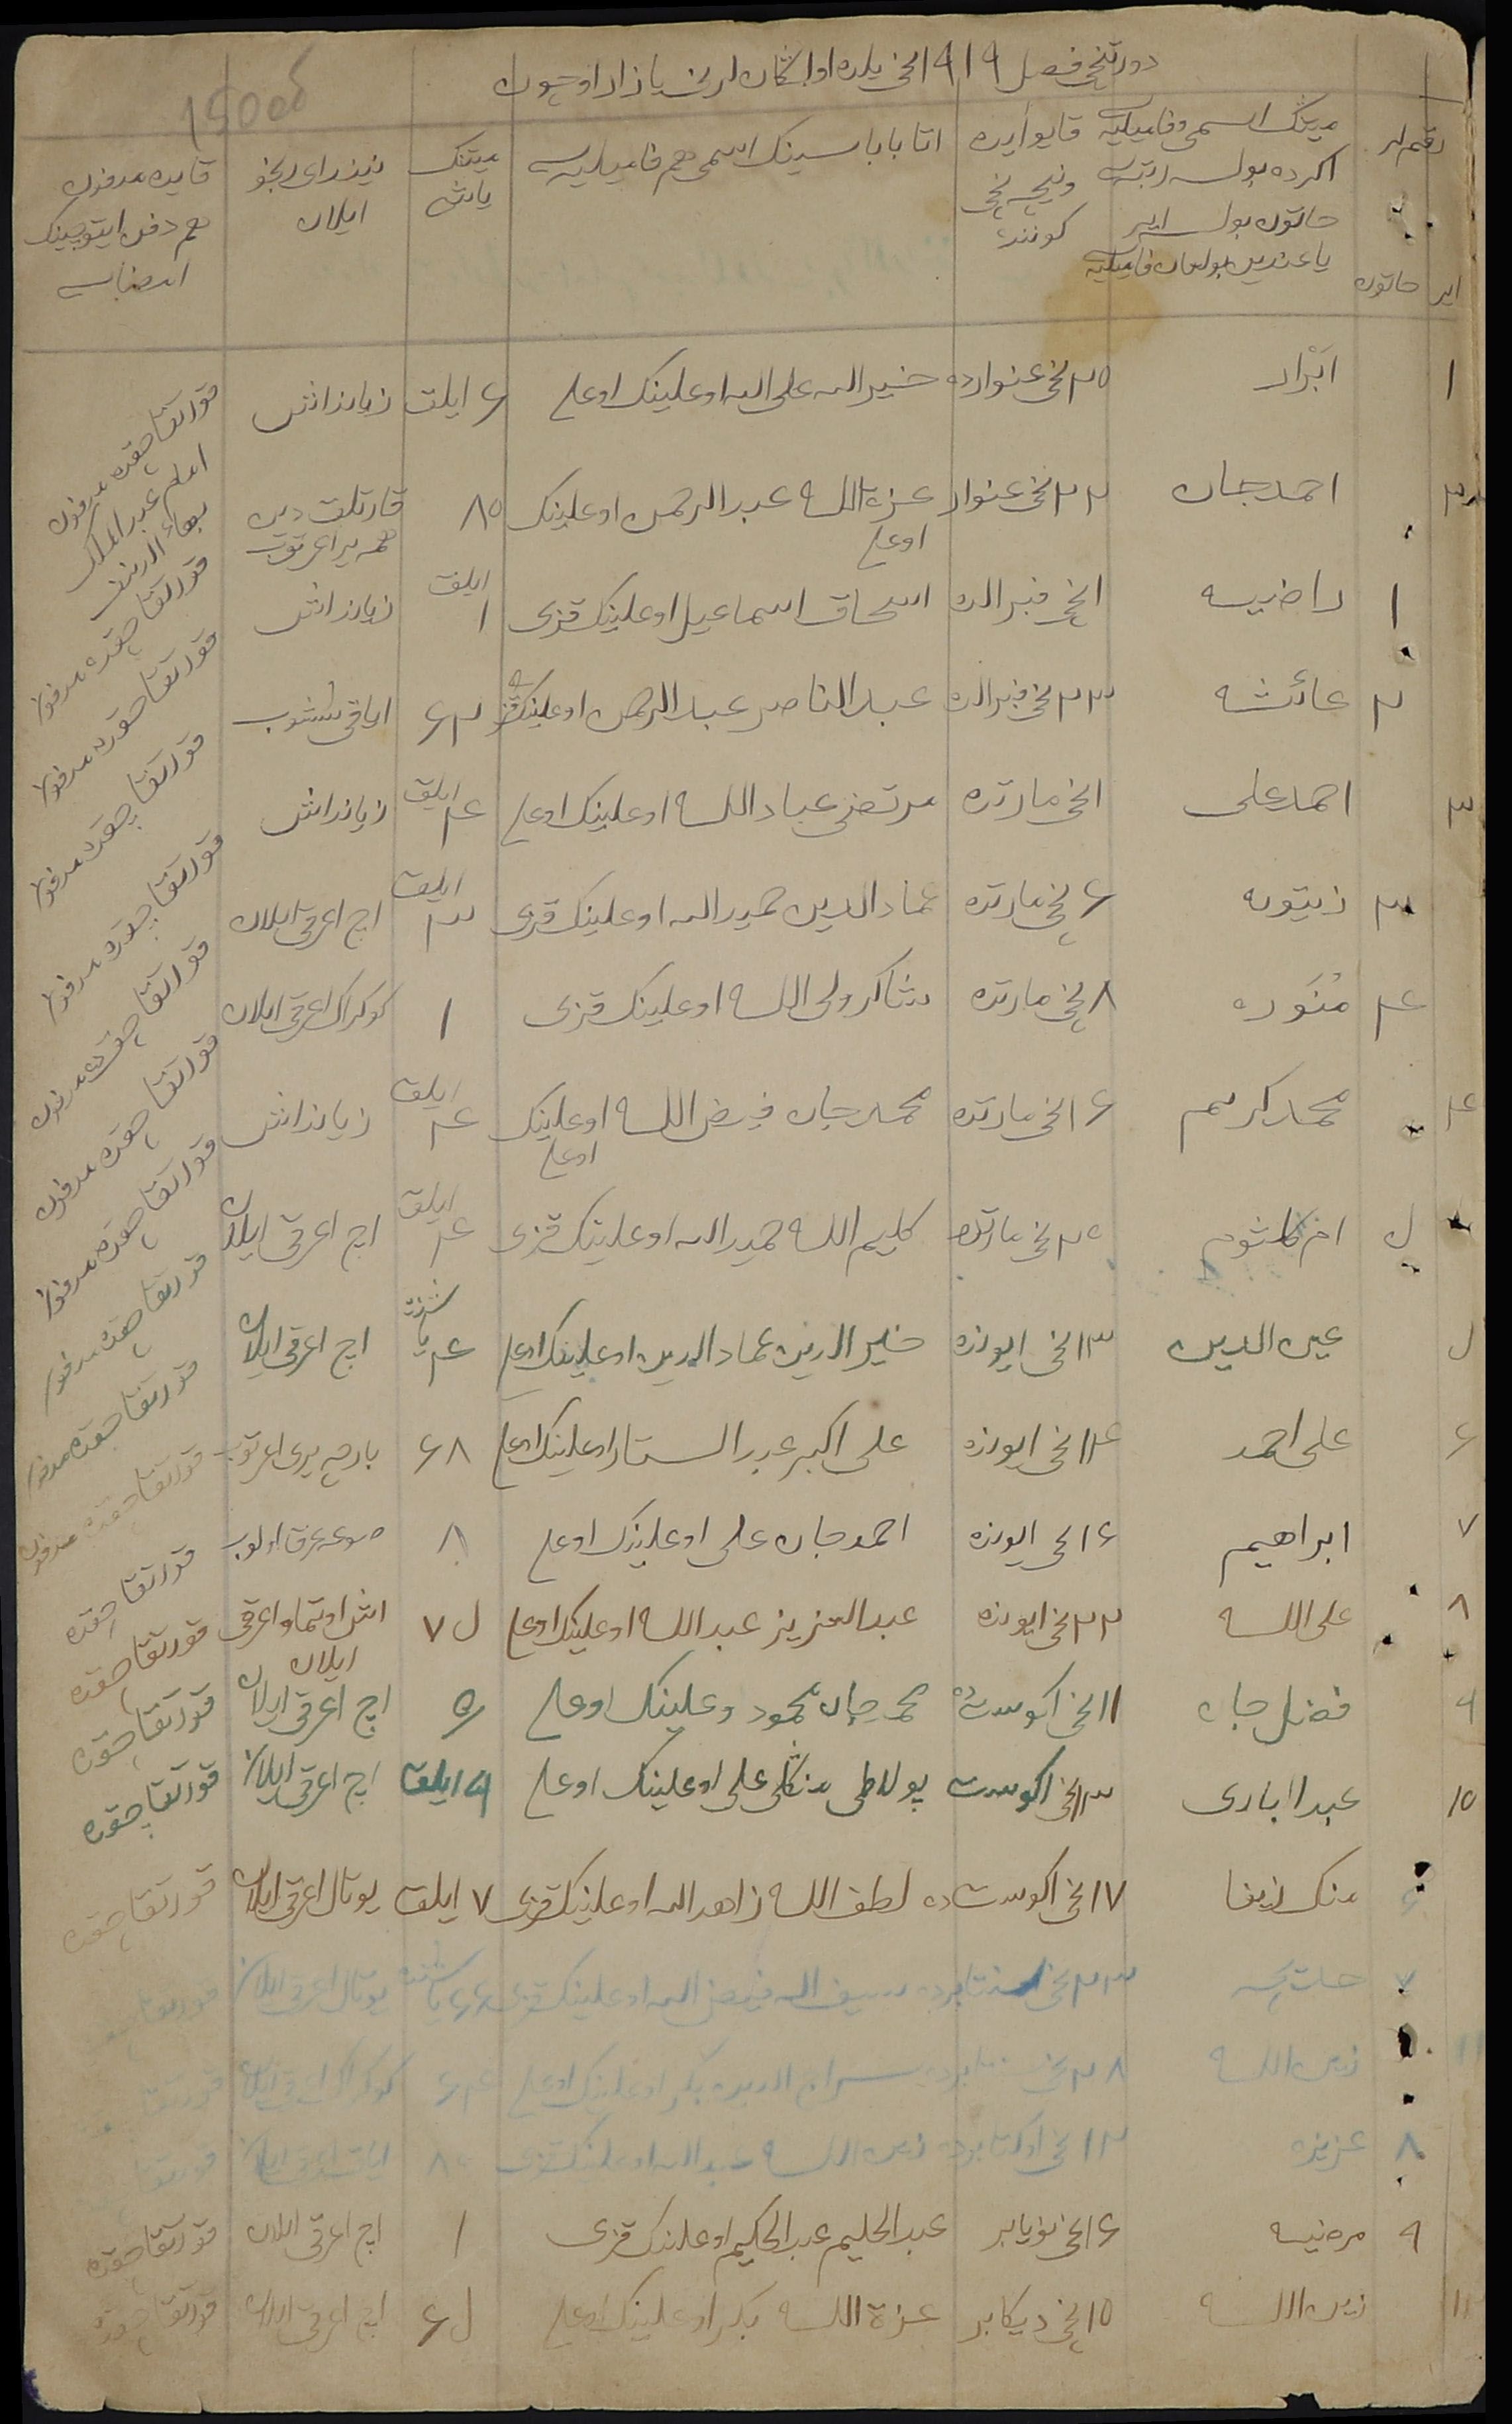 دورتنچی فصل ۱۹۱۹ نچی یلده اولگان‌لرنی یازار اوچون
رقم‌لر
ایر خاتون
میتنک اسمی و فامیلیه
اگرده بولسه رتبه‌سی
خاتون بولسه ایر
یاغندین بولغان فامیلیه
قایو آیده
ونیچه نچی
کوننده
اتا باباسینک اسمی هم فامیلیه‌سی
میتنک
یاشی
نیندای رنجو
ایلان
قایده مدفون
هم دفن ایتوچینک
امضاسی
۱ ابرار ۲۵ نچی غنوارده خیرالله علی الله اوغلینک اوغلی ۶ ایلق زیانداش قورتقا چقده مدفون
۲ احمدجان ۲۲ نچی غنوار عزة الله عبدالرحمن اوغلینک اوغلی ۸۵ قارتلق دین همه یر اغرتوب
امام عبدالملک بهاءالدینف
۱ راضیه ۱ نچی فبرالده اسحاق اسماعیل اوغلینک قزی ۱ ایلق زیانداش قورتقا چقده مدفون
۲ عائشه ۲۳ نچی فبرالده عبدالناصر عبدالرحمن اوغلینک قزی ۶۲ ایاقی شیشوب قورتقا چقده مدفون
۳ احمدعلی ۱ نچی مارتده مرتضی عبادالله اوغلینک اوغلی ۴ ایلق زیانداش قورتقا چقده مدفون
۳ زیتونه ۶ نچی مارتده عمادالدین حمیدالله اوغلینک قزی ۳ ایلق اچ اغرقی ایلان قورتقا چقده مدفون
۴ منوره ۸ نچی مارتده شاکر ولی الله اوغلینک قزی ۱ کوکراک اغرقی ایلان قورتقا چقده مدفون
۴ محمدکریم ۱۶ نچی مارتده محمدجان فیض الله اوغلینک اوغلی ۴ ایلق زیانداش قورتقا چقده مدفون
۵ ام کلثوم ۲۵ نچی مارتده کلیم الله حمیدالله اوغلینک قزی ۴ ایلق اچ اغرقی ایلان قورتقا چقده مدفون
۵ عین الدین ۱۳ نچی ایونده خیرالدین عمادالدین اوغلینک اوغلی ۴ اچ اغرقی ایلان قورتقا چقده مدفون
۶ علی احمد ۱۴ نچی ایونده علی اکبر عبدالستار اوغلینک اوغلی ۶۸ بارچه یری اغرتوب قورتقا چقده مدفون
۷ ابراهیم ۱۶ نچی ایونده احمدجان علی اوغلینک اوغلی ۸ صوغه غرق اولوب قورتقا چقده مدفون
۸ علی الله ۲۲ نچی ایونده عبدالعزیز عبدالله اوغلینک اوغلی ۷۵ اش اوتماو اغرقی ایلان قورتقا چقده
۹ فضل جان ۱۱ نچی اکوستده محمدجان محمود وغلینک اوغلی ۵ اچ اغرقی ایلان قورتقا چقده
۱۰ عبدالباری ۱۳ نچی اکوست پولاطی منگلی علی اوغلینک اوغلی ۹ ایلق اچ اغرقی ایلان قورتقا چقده
۶ منک زیفا ۱۷ نچی اکوست ده لطف الله زاهدالله اوغلینک قزی ۷ ایلق یوتال اغرقی ایلان قورتقا چقده
۷ ۲۳ نچی سنتابرده سیف الله فیض الله اوغلینک قزی یوتال اغرقی ایلان
۱۱ زین الله ۲۸ نچی سراج الدین بکر اوغلینک اوغلی ۶۴ کوکراک اغرقی ایلان
۸ عزیزه ۱۲ نچی اوکتابرده زین الله عبدالله اوغلینک قزی
۹ مرضیه ۱۶ نچی نویابر عبدالحلیم عبدالحکیم اوغلینک قزی ۱ اچ اغرقی ایلان قورتقا چقده
۱۱ زین الله ۱۵ نچی دیکابر عزة الله بکر اوغلینک اوغلی ۶۵ اچ اغرقی ایلان قورتقا چقده